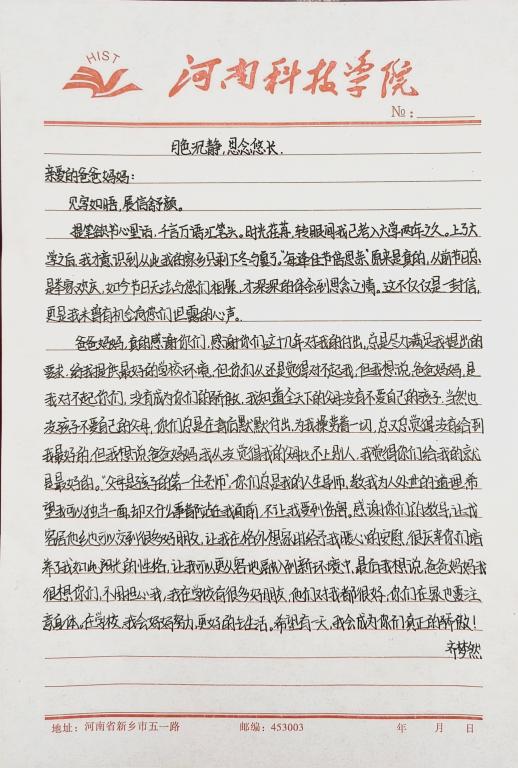 HIST
河南科技学院
№:
月色沉静,思念悠长.
亲爱的爸爸妈妈:
见字如晤,展信舒颜。
提笔续书心里话,千言万语汇笔尖。时光荏苒,转眼间我已老入大学两年之久。上了大
学之后,我才意识到从此我的家乡只剩下冬与夏了,“每逢佳节倍思亲”原来是真的,从前节日总
是举家欢庆,如今节日无法与您们相聚,才深深的体会到思念之情。这不仅仅是一封信,
更是我未曾有机会向您们袒露的心声。
爸爸妈妈,真的感谢你们,感谢你们这十几年对我的付出,总是尽力满足我提出的
要求,给我提供最好的学校环境,但你们从还是觉得对不起我,但我想说,爸爸妈妈,是
我对不起你们,没有成为你们的骄傲,我知道全天下的父母没有不要自己的孩子,当然也
没孩子不要自己的父母,你们总是在背后默默付出,为我操劳着一切,总又总觉得没有给到
我最好的,但我想说爸爸妈妈我从没觉得我的父母比不上别人,我觉得你们给我的就
是最好的。“父母是孩子的第一任老师”,你们总是我的人生导师,教我为人处世的道理,希
望我可以独当一面,却又什么事都站在我面前,不让我受到伤害,感谢你们的教导,让我
客居他乡也可以交到很多好朋友,让我在格外想家时给予我暖心的安慰,很庆幸你们培
养了我如此阳光的性格,让我可以更从容地融入到新环境中,最后我想说,爸爸妈妈我
很想你们,不用担心我,我在学校有很多好朋友,他们对我都很好,你们在家也要注
意身体。在学校,我会好好努力,更好的去生活。希望有一天,我会成为你们真正的骄傲!
齐梦然
地址:河南省新乡市五一路 邮编:453003 年 月 日